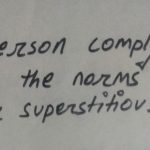 erson compl
the norms
superstitiou